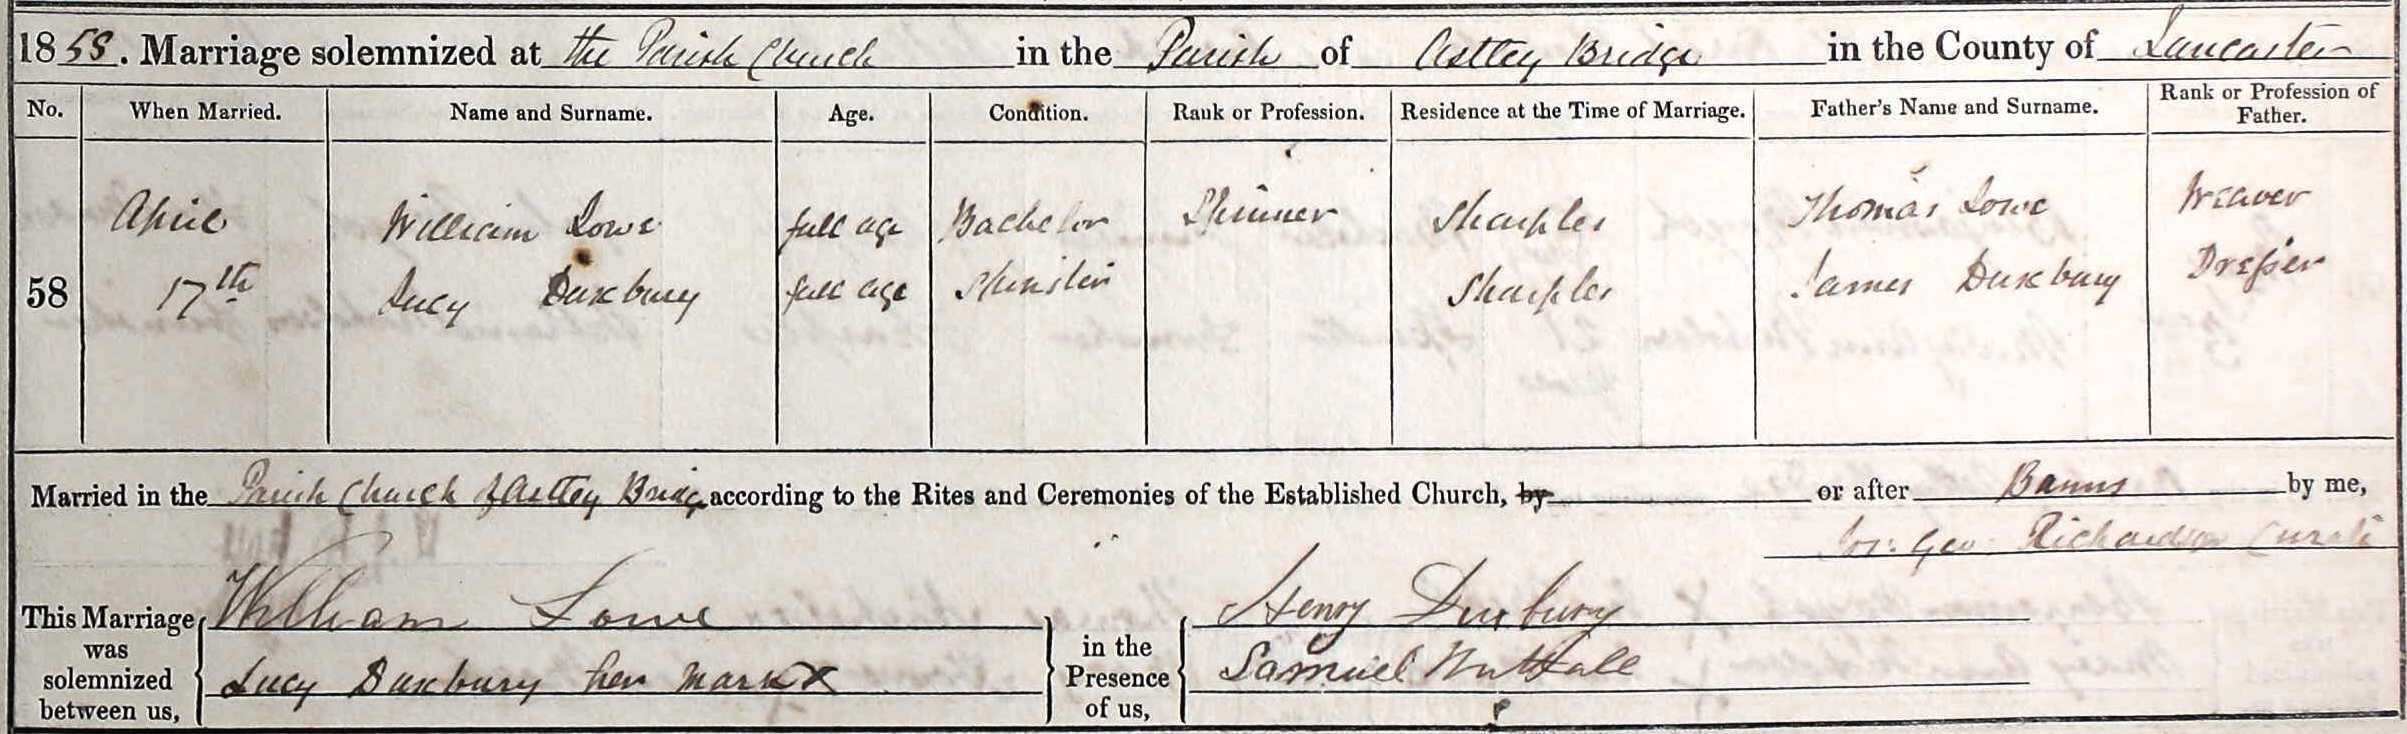 1858. Marriage solemnized at the Parish Church in the Parish of Astley Bridge in the County of Lancaster
No. When Married. Name and Surname. Age. Condition. Rank or Profession. Residence at the Time of Marriage. Father's Name and Surname. Rank or Profession of Father.
April William Lowe full age Bachelor Spinner Sharples Thomas Lowe Weaver
58 17th Lucy Duxbury full age Spinster Sharples James Duxbury Dresser
Married in the Parish Church of Astley Bridge according to the Rites and Ceremonies of the Established Church, by or after Banns by me,
Jos: Geo: Richardson Curate
This Marriage was solemnized between us, William Lowe in the Presence of us, Henry Duxbury
Lucy Duxbury her mark X Samuel Nuttall